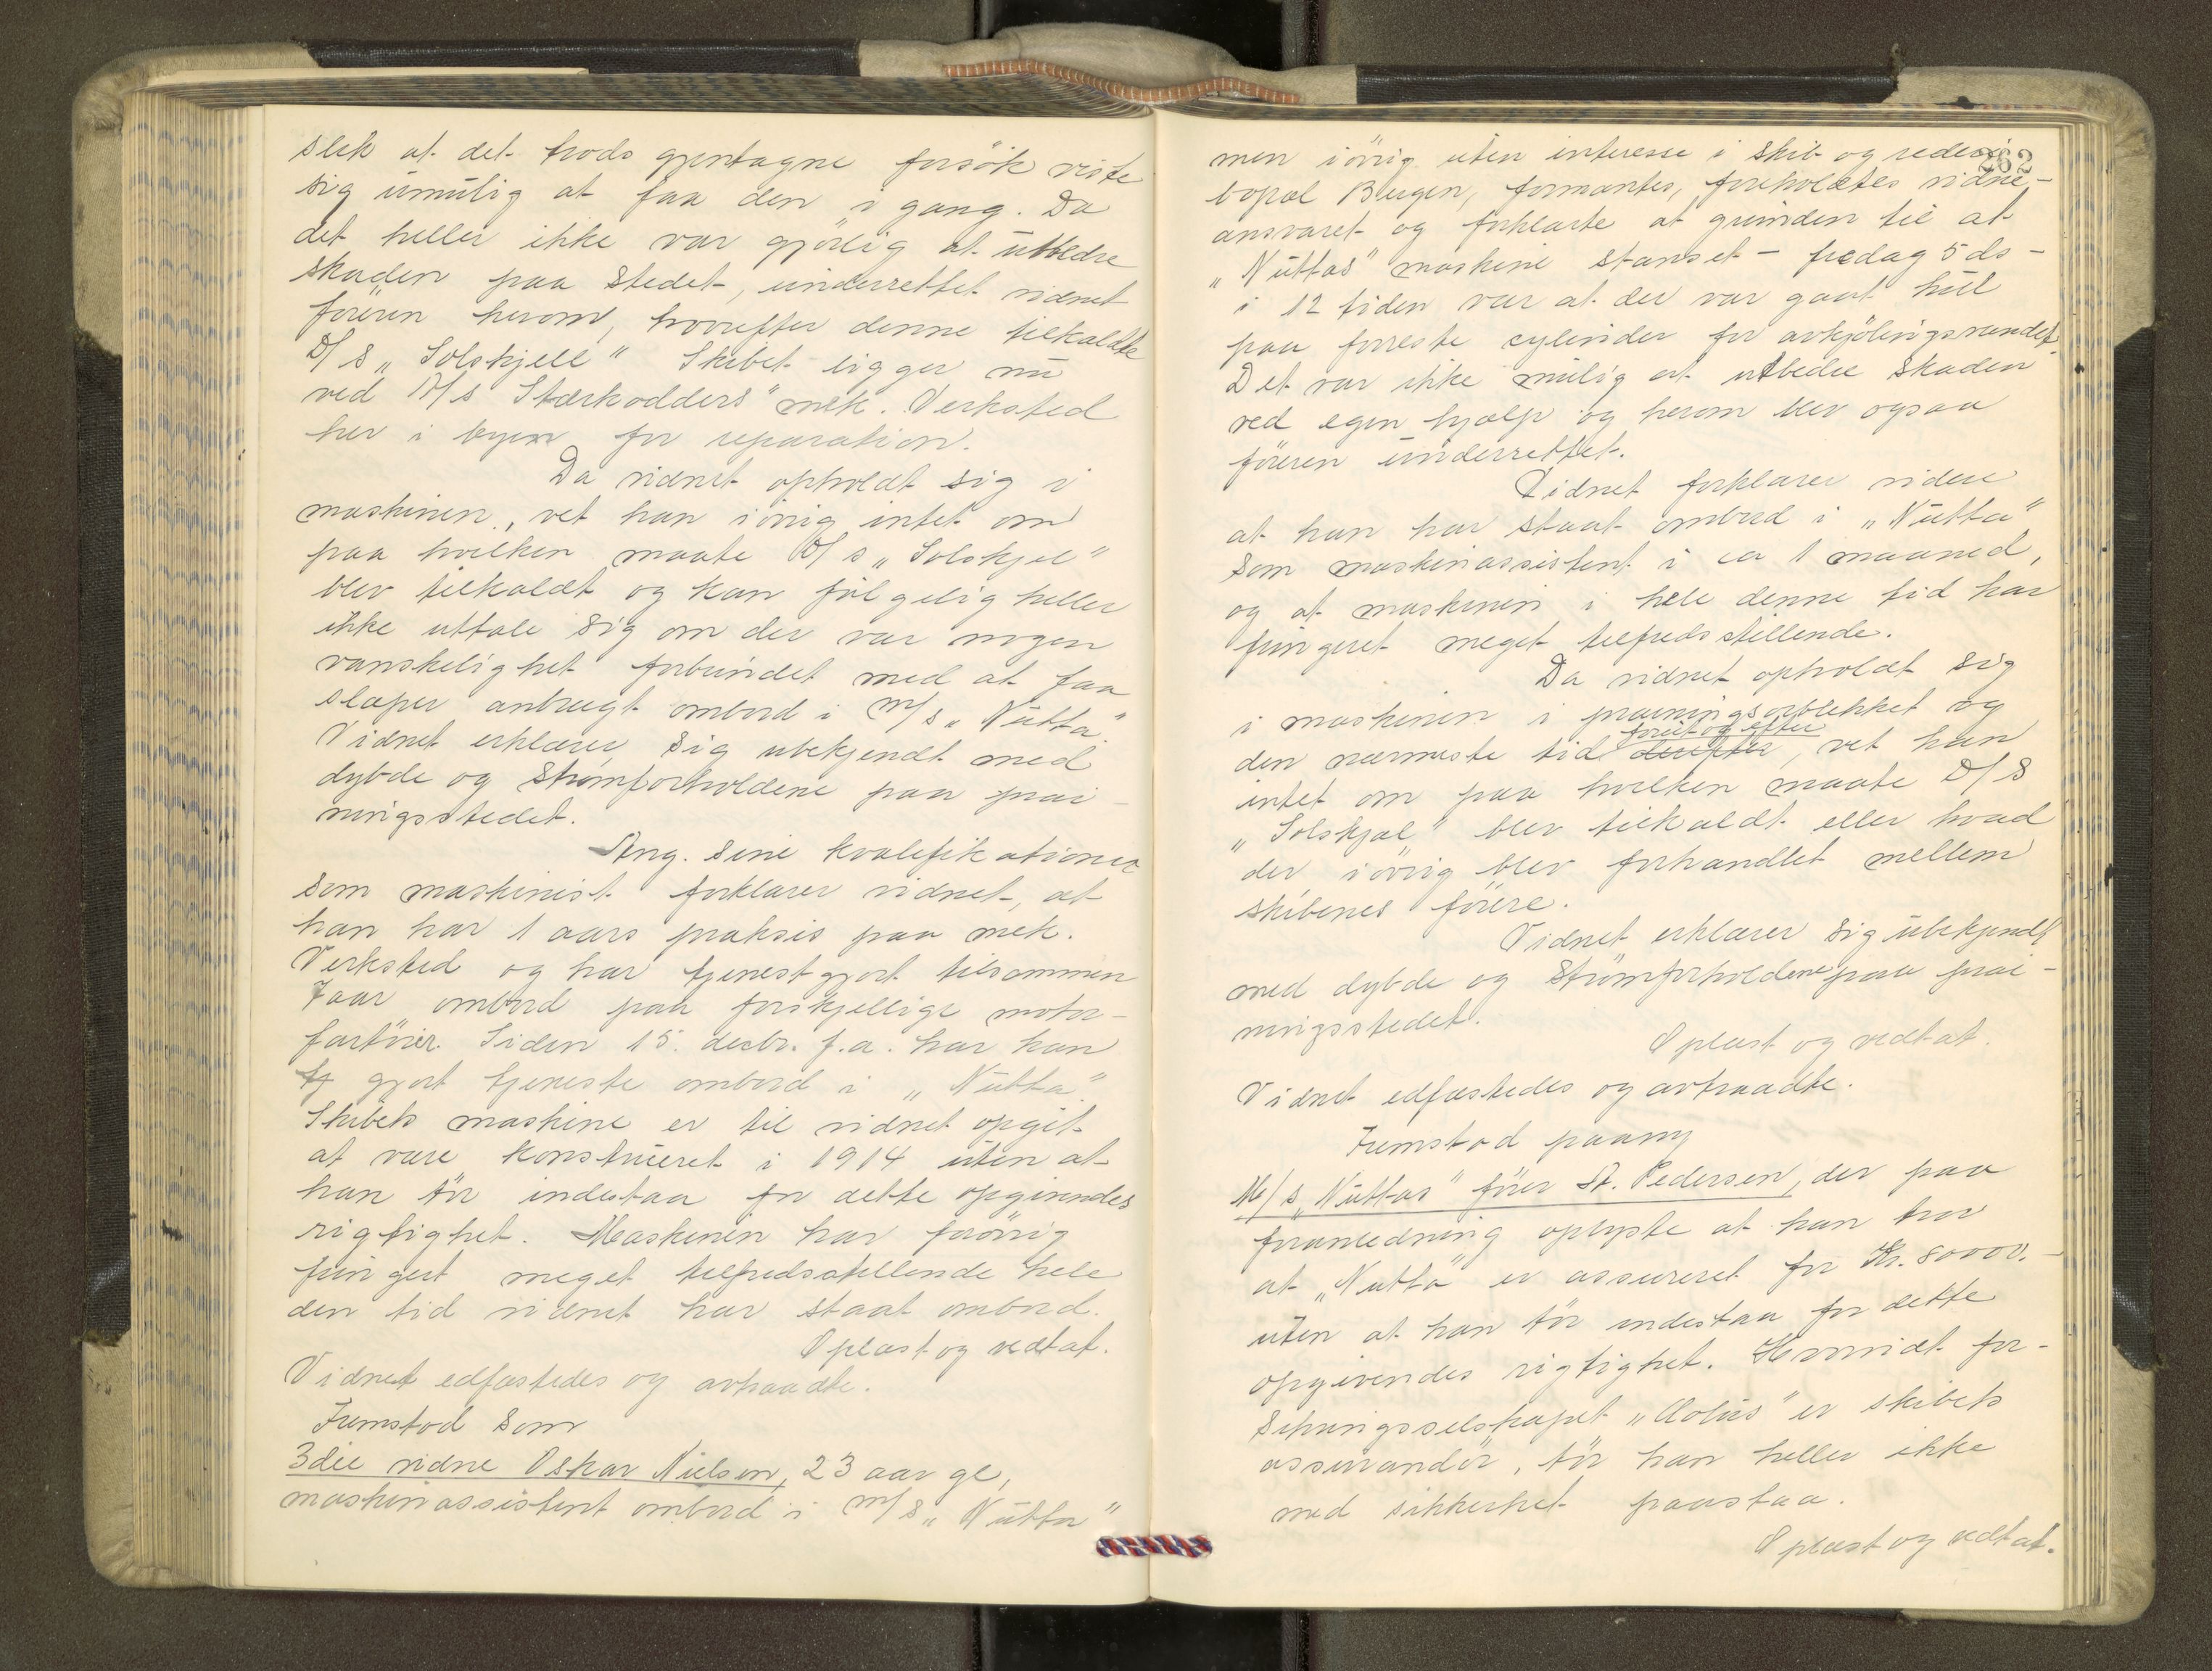 slik at det trods gjentagne forsök viste
sig umulig at faa den i gang. Da
det heller ikke var gjörlig at utbedre
skaden paa stedet, underrettet vidnet
föreren herom, hvorefter denne tilkaldte
D/S „Solskjell" Skibet ligger nu
ved A/s Stærkodders" mek. Verksted
her i byen for reparation.
Da vidnet opholdt sig i
maskinen, vet han iövrig intet om
paa hvilken maate D/s „Solskjel"
blev tilkaldt og kan fölgelig heller
ikke uttale sig om der var nogen
vanskelighet forbundet med at faa
slæper anbragt ombord i m/s „Nutta".
Vidnet erklærer sig ubekjendt med
dybde og Strömforholdene paa prai-
ningsstedet.
Ang. sine kvalifikationer
som maskinist forklarer vidnet, at
han har 1 aars praksis paa mek.
Verksted og har tjenestgjort tilsammen
7 aar ombord paa forskjellige motor-
fartöier. Siden 15. decbr. f.a. har han
tj gjort tjeneste ombord i „Nutta".
Skibets maskine er til vidnet opgit
at være konstrueret i 1914 uten at
han tör indestaa for dette opgivendes
rigtighet. Maskinen har forövrig
fungert meget tilfredsstillende hele
den tid vidnet har staat ombord.
Oplæst og vedtat.
Vidnet edfæstedes og avtraadte.
Fremstod som
3die vidne Oskar Nielsen, 23 aar gl,
maskinassistent ombord i m/s „Nutta"
262
men iövrig uten interesse i skib og rederi
bopæl Bergen, formantes, foreholdtes vidne-
ansvaret og forklarte at grunden til at
„Nuttas" maskine stanset - fredag 5 ds -
i 12 tiden var at der var gaat hul
paa forreste cylinder for avkjölingsvandet.
Det var ikke mulig at utbedre skaden
ved egen hjælp og herom blev ogsaa
föreren underrettet.
Vidnet forklarer videre
at han har staat ombord i „Nutta"
som maskinassistent i ca 1 maaned,
og at maskinen i hele denne tid har
fungeret meget tilfredsstillende.
Da vidnet opholdt sig
i maskinen i prainingsöieblikket og
forut og efter
den nærmeste tid derefter, vet han
intet om paa hvilken maate D/S
„Solskjæl" blev tilkaldt eller hvad
der iövrig blev forhandlet mellem
skibenes förere.
Vidnet erklærer sig ubekjendt
med dybde og Strömforholdene paa prai-
ningsstedet.
Oplæst og vedtat.
Vidnet edfæstedes og avtraadte.
Fremstod paany
M/s „Nuttas" förer St. Pedersen, der paa
foranledning oplyste at han tror
at „Nutta" er assureret for Kr. 80000.-
uten at han tör indestaa for dette
opgivendes rigtighet. Hvorvidt for-
sikringsselskapet „Æolus" er skibets
assurandör, tör han heller ikke
med sikkerhet paastaa.
Oplæst og vedtat.